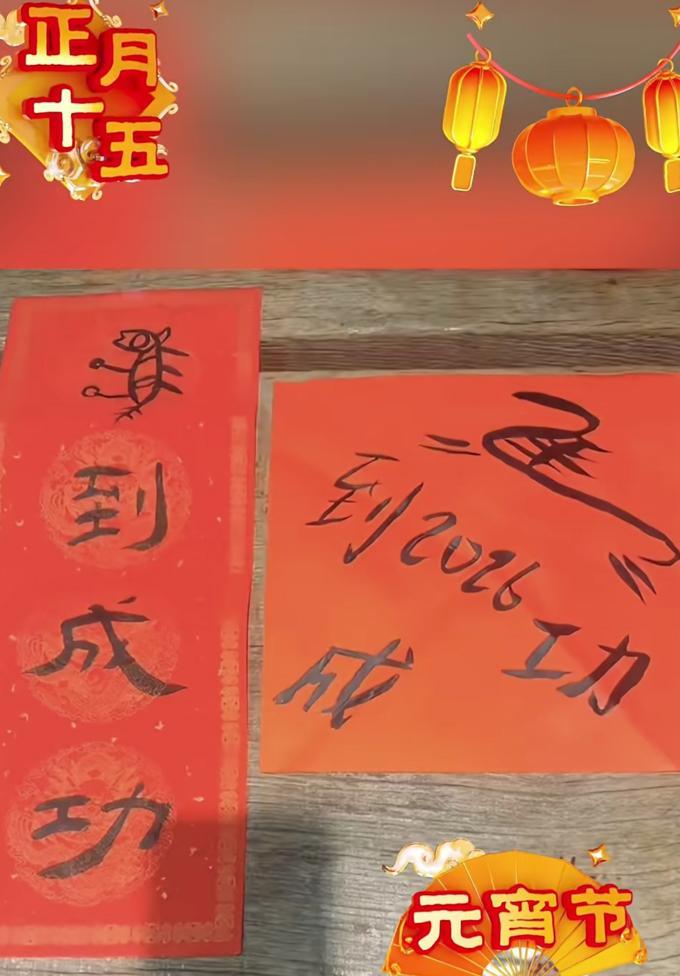 正月
十五
到
成
功
到2026
成功
元宵节